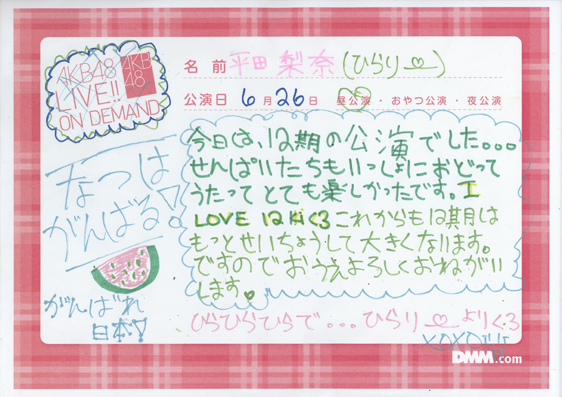 AKB48
LIVE!!
ON DEMAND
AKB
48
名前 平田梨奈(ひらりー)
公演日 6月26日 昼公演・おやつ公演・夜公演
今日は、12期の公演でした。。。
せんぱいたちもいっしょにおどって
うたってとても楽しかったです。I
LOVE 12ki<3 これからも12期は
もっとせいちょうして大きくなります。
ですのでおうえんよろしくおねがい
します。
なつは
がんばる!
がんばれ
日本!
ひらひらひらで...ひらりーより<3
DMM.com